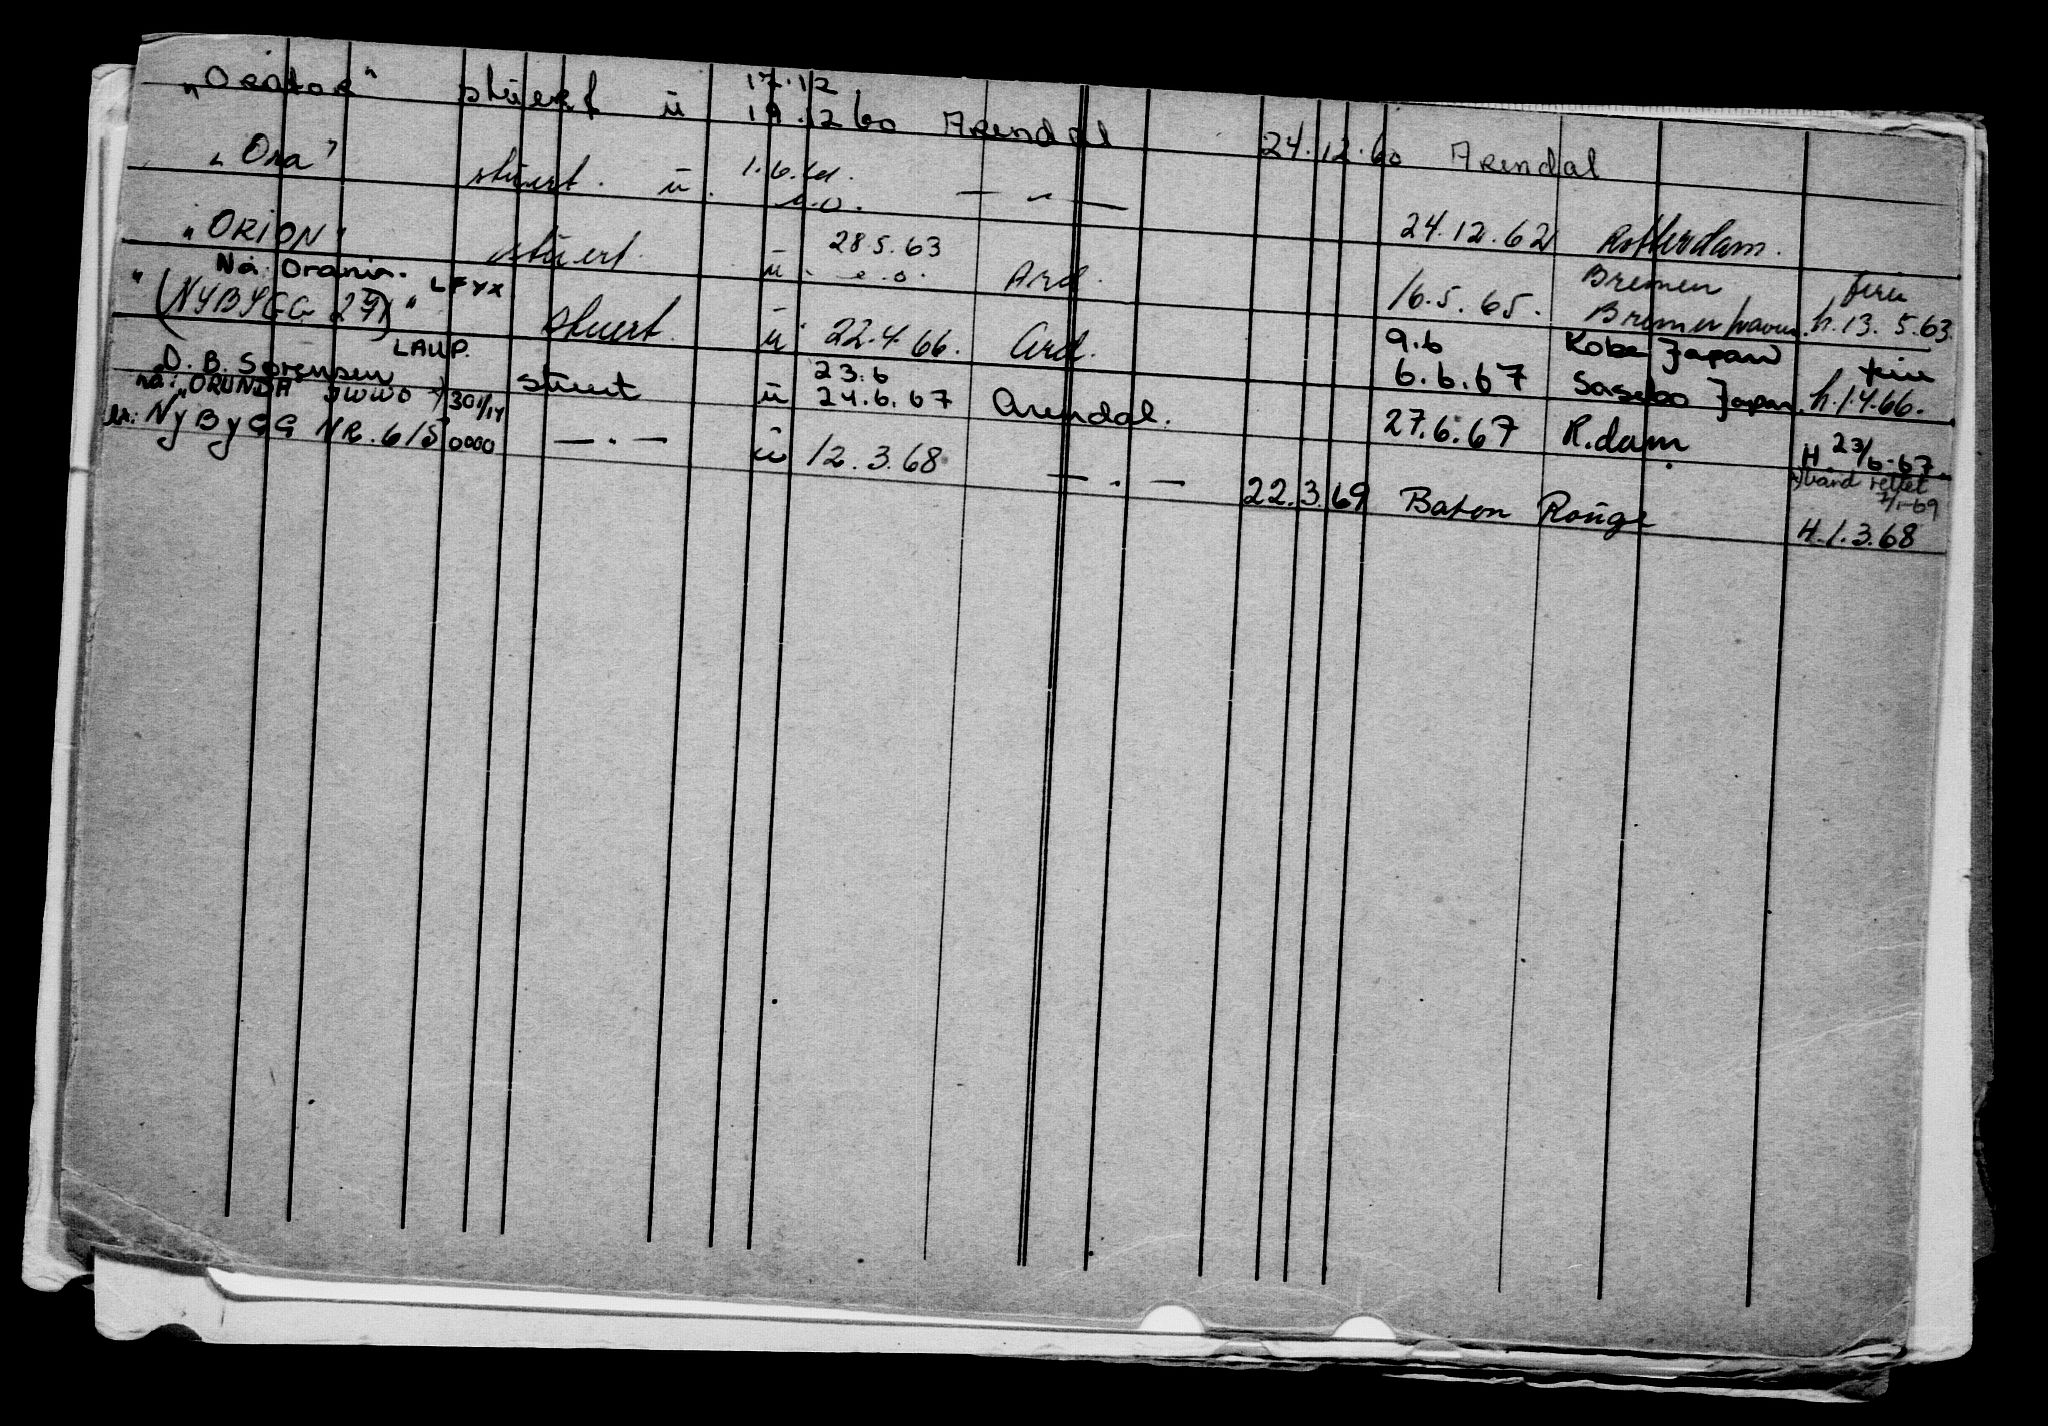 17.12
"Orator" stuert ü 19.12 60 Arendal 24.12.60 Arendal
"Ora" stuert. ü. 1.6.61. — " —
e.o. 24.12.62 Rotterdam.
"ORION" stuert. ü. 28 5.63 Ard. Bremen ferie
e.o. 16.5.65. Bremerhaven. h.13.5.63.
Na. Orania. LFYX
"(NYBYGG 271)" stuert. ü 22.4.66. Ard. 9.6 Kobe Japan ferie
6.6.67 Sasebo Japan. h.1.4.66.
LAUP.
D. B. Sørensen stuert ü 23.6
24.6.67 Arendal. 27.6.67 R.dam H. 23/6.67.
na: "ORUNDA" JWWO 301/14 x) vand rettet
7/1-69
br. NyByGG NR. 615 0000 — . — ü 12.3.68 — . — 22.3.69 Baton Rouge H.1.3.68